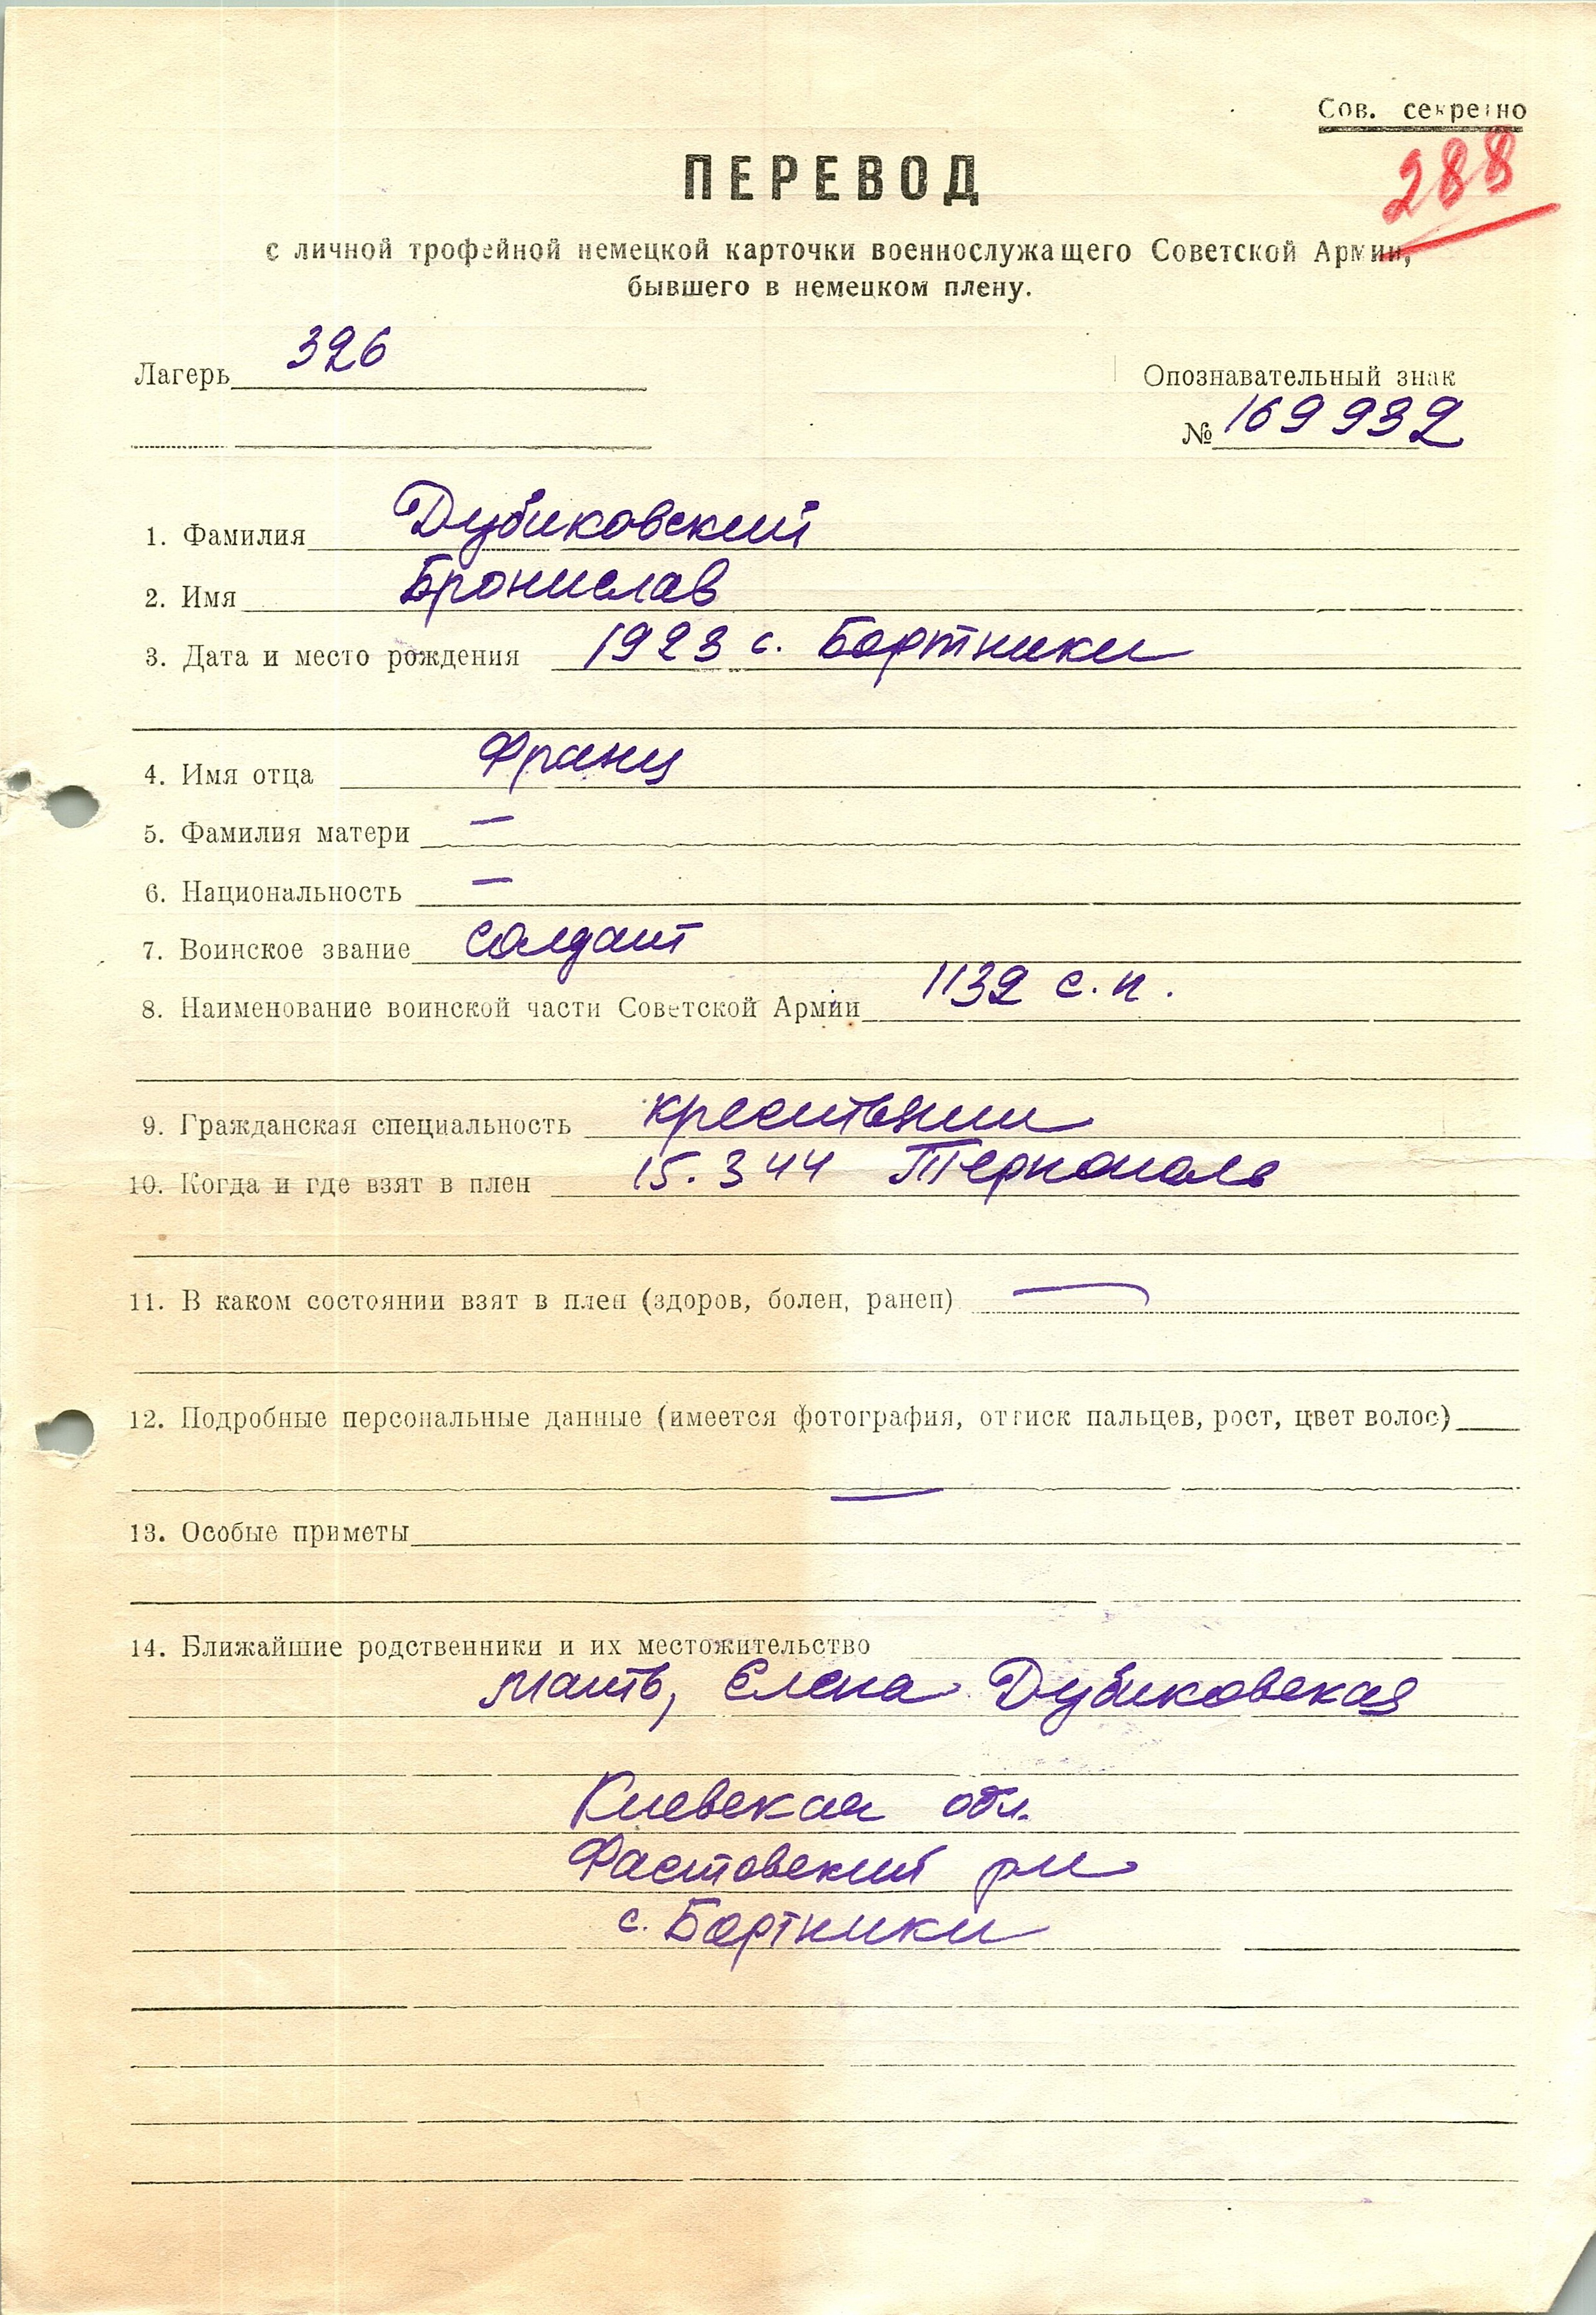 Сов. секретно
288
ПЕРЕВОД
с личной трофейной немецкой карточки военнослужащего Советской Армии,
бывшего в немецком плену.
Лагерь 326
Опознавательный знак
№ 169932
1. Фамилия Дубиковский
2. Имя Бронислав
3. Дата и место рождения 1923 с. Бортники
4. Имя отца Франц
5. Фамилия матери —
6. Национальность —
7. Воинское звание солдат
8. Наименование воинской части Советской Армии 1132 с.п.
9. Гражданская специальность крестьянин
10. Когда и где взят в плен 15.3 44 Тернополь
11. В каком состоянии взят в плен (здоров, болен, ранен) —
12. Подробные персональные данные (имеется фотография, оттиск пальцев, рост, цвет волос)
—
13. Особые приметы
14. Ближайшие родственники и их местожительство
мать, Елена Дубиковская
Киевская обл.
Фастовский рн
с. Бортники